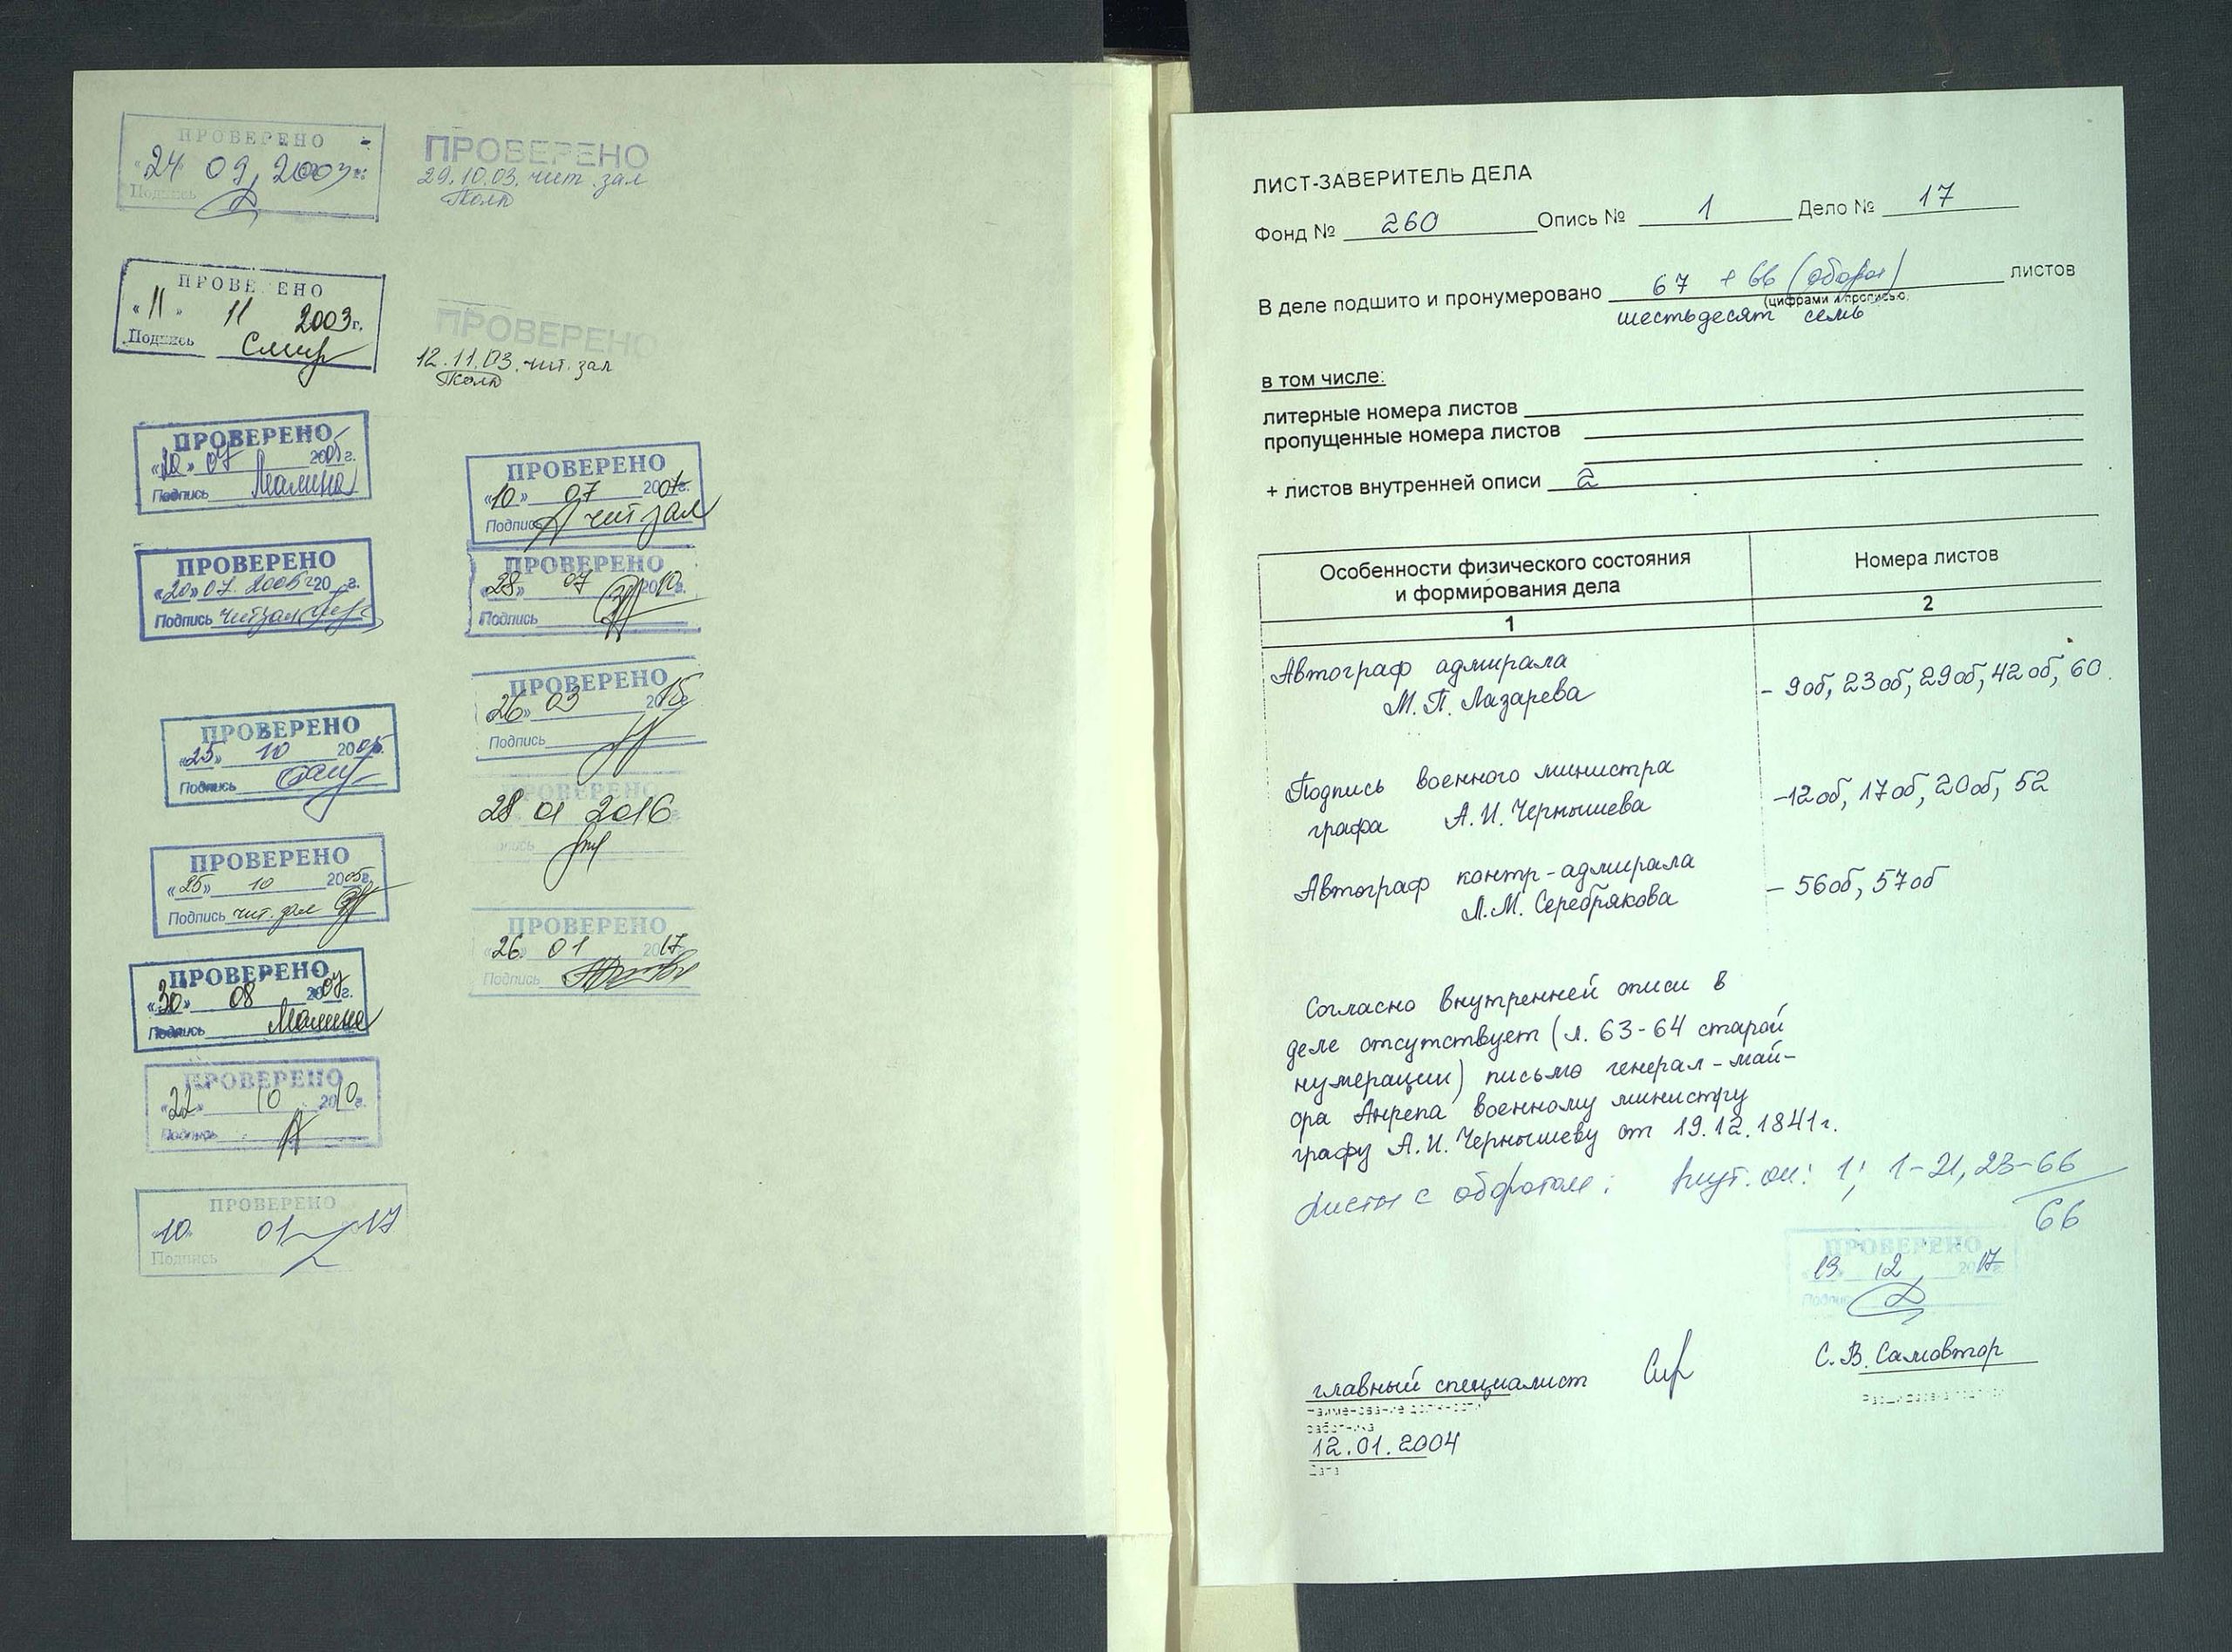 ПРОВЕРЕНО
"24" 09, 2003 г.
Подпись
ПРОВЕРЕНО
29.10.03. чит. зал
ПРОВЕ ЕНО
"11" 11 2003 г.
Подпись
ПРОВЕРЕНО
12.11.03. чит. зал
ПРОВЕРЕНО
07 2005 г.
Подпись Малина
ПРОВЕРЕНО
«20» 07. 20 г.
Подпись чит зал
ПРОВЕРЕНО
«25» 10 2005.
Подпись
ПРОВЕРЕНО
«25» 10 2005г.
Подпись чит. зал
ПРОВЕРЕНО
«30» 08 г.
Подпись Малина
ПРОВЕРЕНО
«22» 10 2010г.
Подпись
ПРОВЕРЕНО
«10» 01 17
Подпись
ПРОВЕРЕНО
«10» 07 2007г.
Подпись чит зал
ПРОВЕРЕНО
«28» 07 2010г.
Подпись
ПРОВЕРЕНО
26» 03 2015г
Подпись
ПРОВЕРЕНО
28 01 2016
ПРОВЕРЕНО
26. 01 2017
Подпись
ЛИСТ-ЗАВЕРИТЕЛЬ ДЕЛА
Фонд № 260 Опись № 1 Дело № 17
В деле подшито и пронумеровано 67 + 66 (оборот) листов
(цифрами и прописью)
шестьдесят семь
в том числе:
литерные номера листов
пропущенные номера листов
+ листов внутренней описи 2
Особенности физического состояния
и формирования дела
Номера листов
1
2
Автограф адмирала
М.П. Лазарева
- 9об, 23об, 29об, 42об, 60.
Подпись военного министра
графа А.И. Чернышева
-12об, 17об, 20об, 52
Автограф контр-адмирала
Л.М. Серебрякова
- 56об, 57об
Согласно внутренней описи в
деле отсутствует (л. 63-64 старой
нумерации) письмо генерал-май-
ора Анрепа военному министру
графу А.И. Чернышеву от 19.12.1841г.
Листы с оборотом: внут. оп: 1; 1-21, 23-66
66
ПРОВЕРЕНО
13 12 2017г.
Подпись
главный специалист
С.В. Самовтор
наименование должности
работника
расшифровка подписи
12.01.2004
Дата